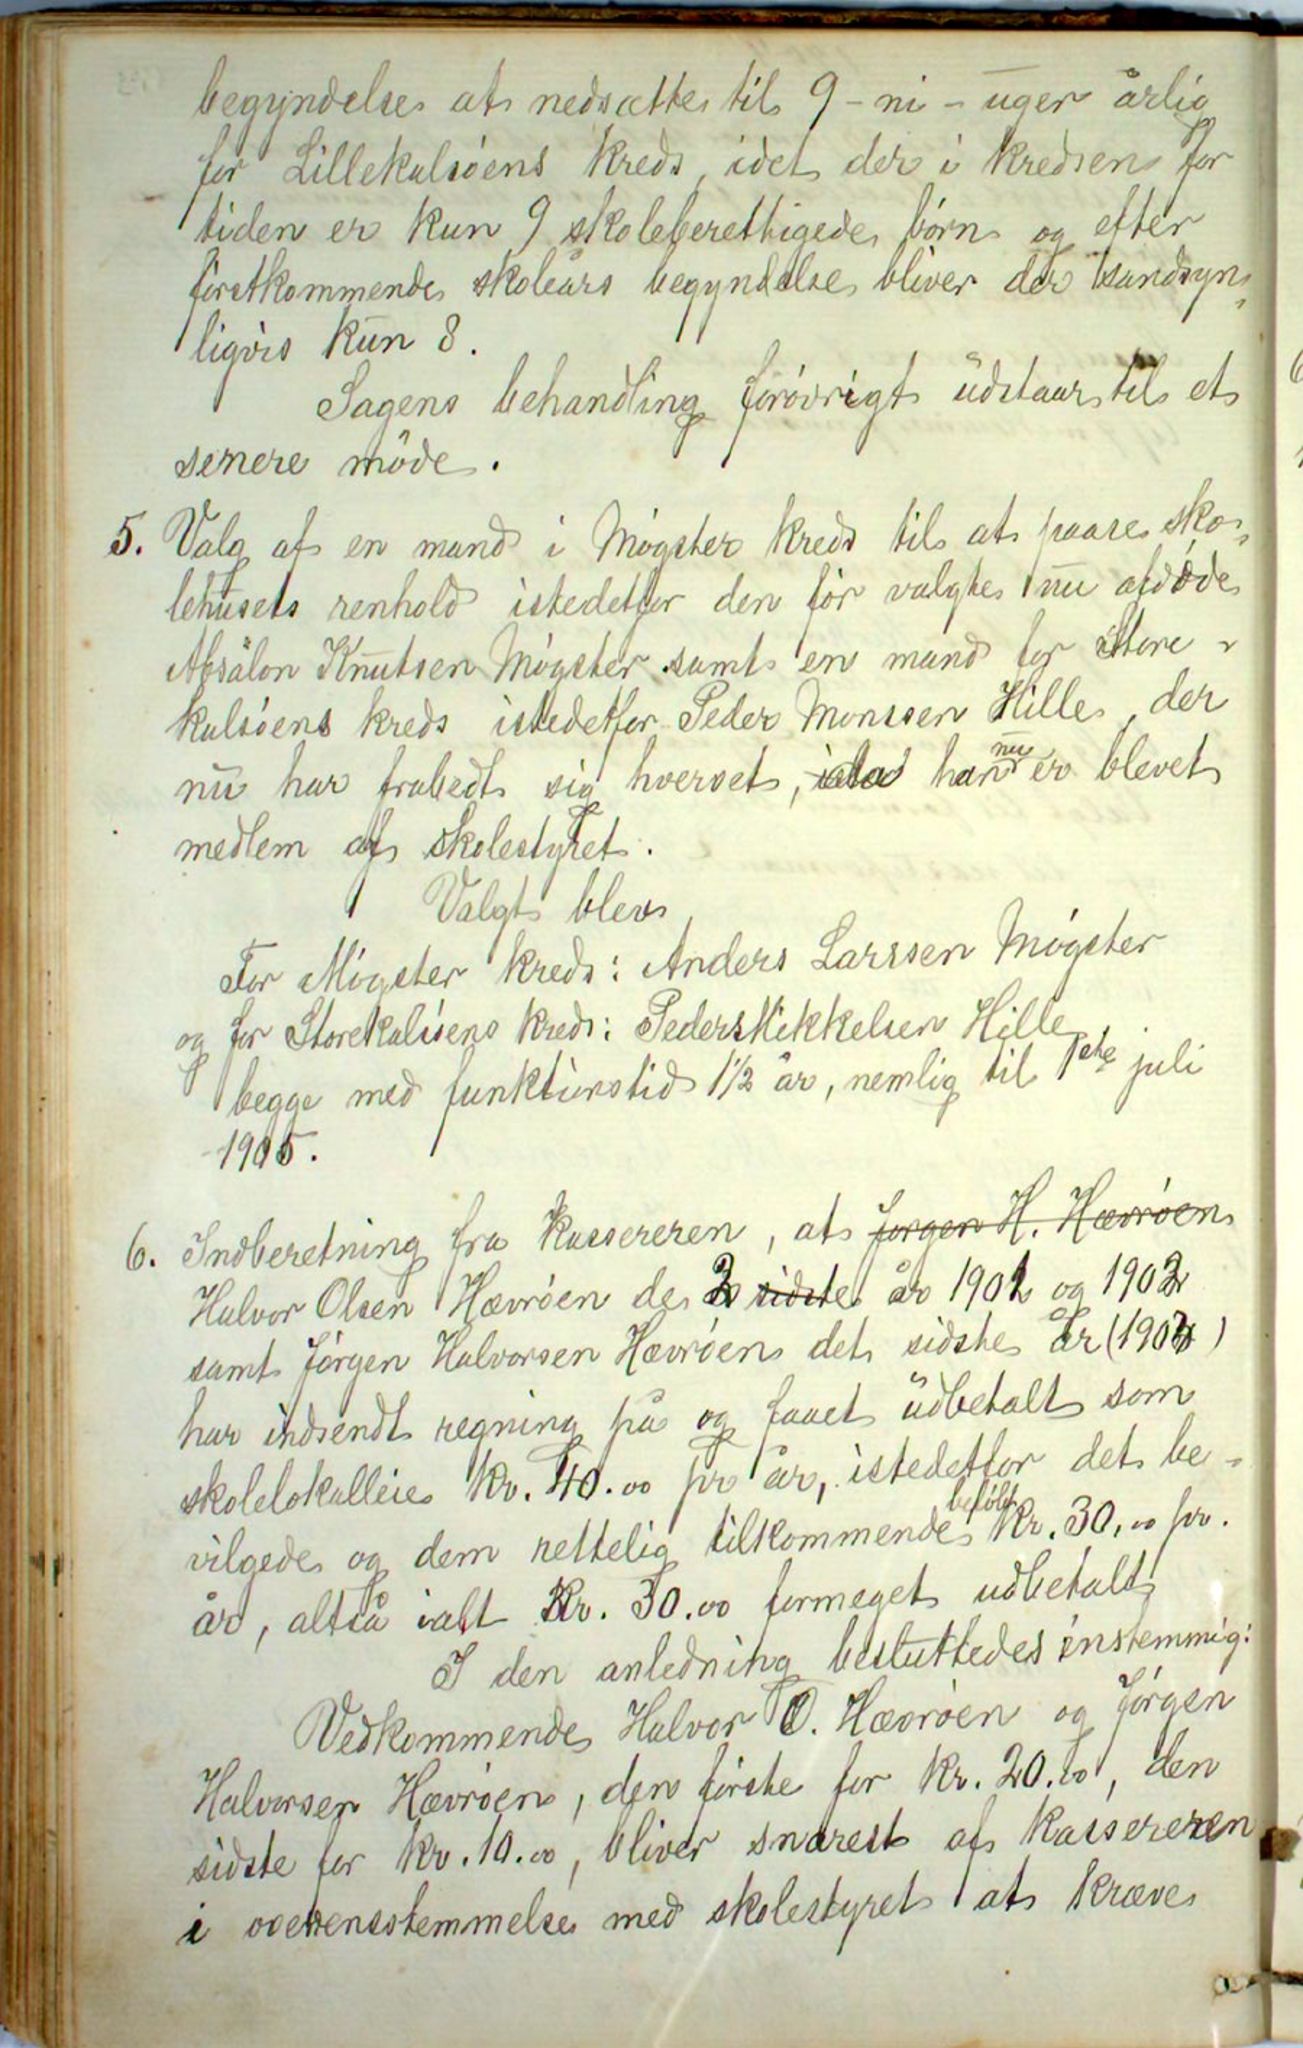 begyndelse at nedsættes til 9 - ni - uger årlig
for Lillekalsöens kreds, idet der i kredsen for
tiden er kun 9 skoleberettigede börn og efter
förstkommende skoleårs begyndelse bliver der sandsyn-
ligvis kun 8.
Sagens behandling forövrigt udstaar til et
senere möde.
5. Valg af en mand i Mögster kreds til at paase sko-
lehusets renhold istedetfor den för valgte nu afdöde
Absalon Knutsen Mögster samt en mand for Store-
kalsöens kreds istedetfor Peder Monssen Hille, der
nu har frabedt sig hvervet, han nu er blevet
medlem af skolestyret.
Valgt blev
For Mögster kreds: Anders Larssen Mögster
og for Storekalsöens kreds: Peder Mikkelsen Hille,
begge med funktionstid 1½ år, nemlig til 1ste juli
1905.
6. Indberetning fra kassereren, at Jörgen H. Hævröen
Halvor Olsen Hævröen de 2 sidste år 1901 og 1902
samt Jörgen Halvorsen Hævröen det sidste år (1903)
har indsendt regning på og faaet udbetalt som
skolelokalleie kr. 40.00 pr år, istedetfor det be-
vilgede og dem rettelig tilkommende beløb kr. 30,00 pr.
år, altså ialt kr. 30.00 formeget udbetalt
I den anledning besluttedes enstemmig:
Vedkommende Halvor O. Hævröen og Jörgen
Halvorsen Hævröen, den förste for kr. 20.00, den
sidste for kr. 10.00, bliver snarest af kassereren
i overensstemmelse med skolestyret at kræve